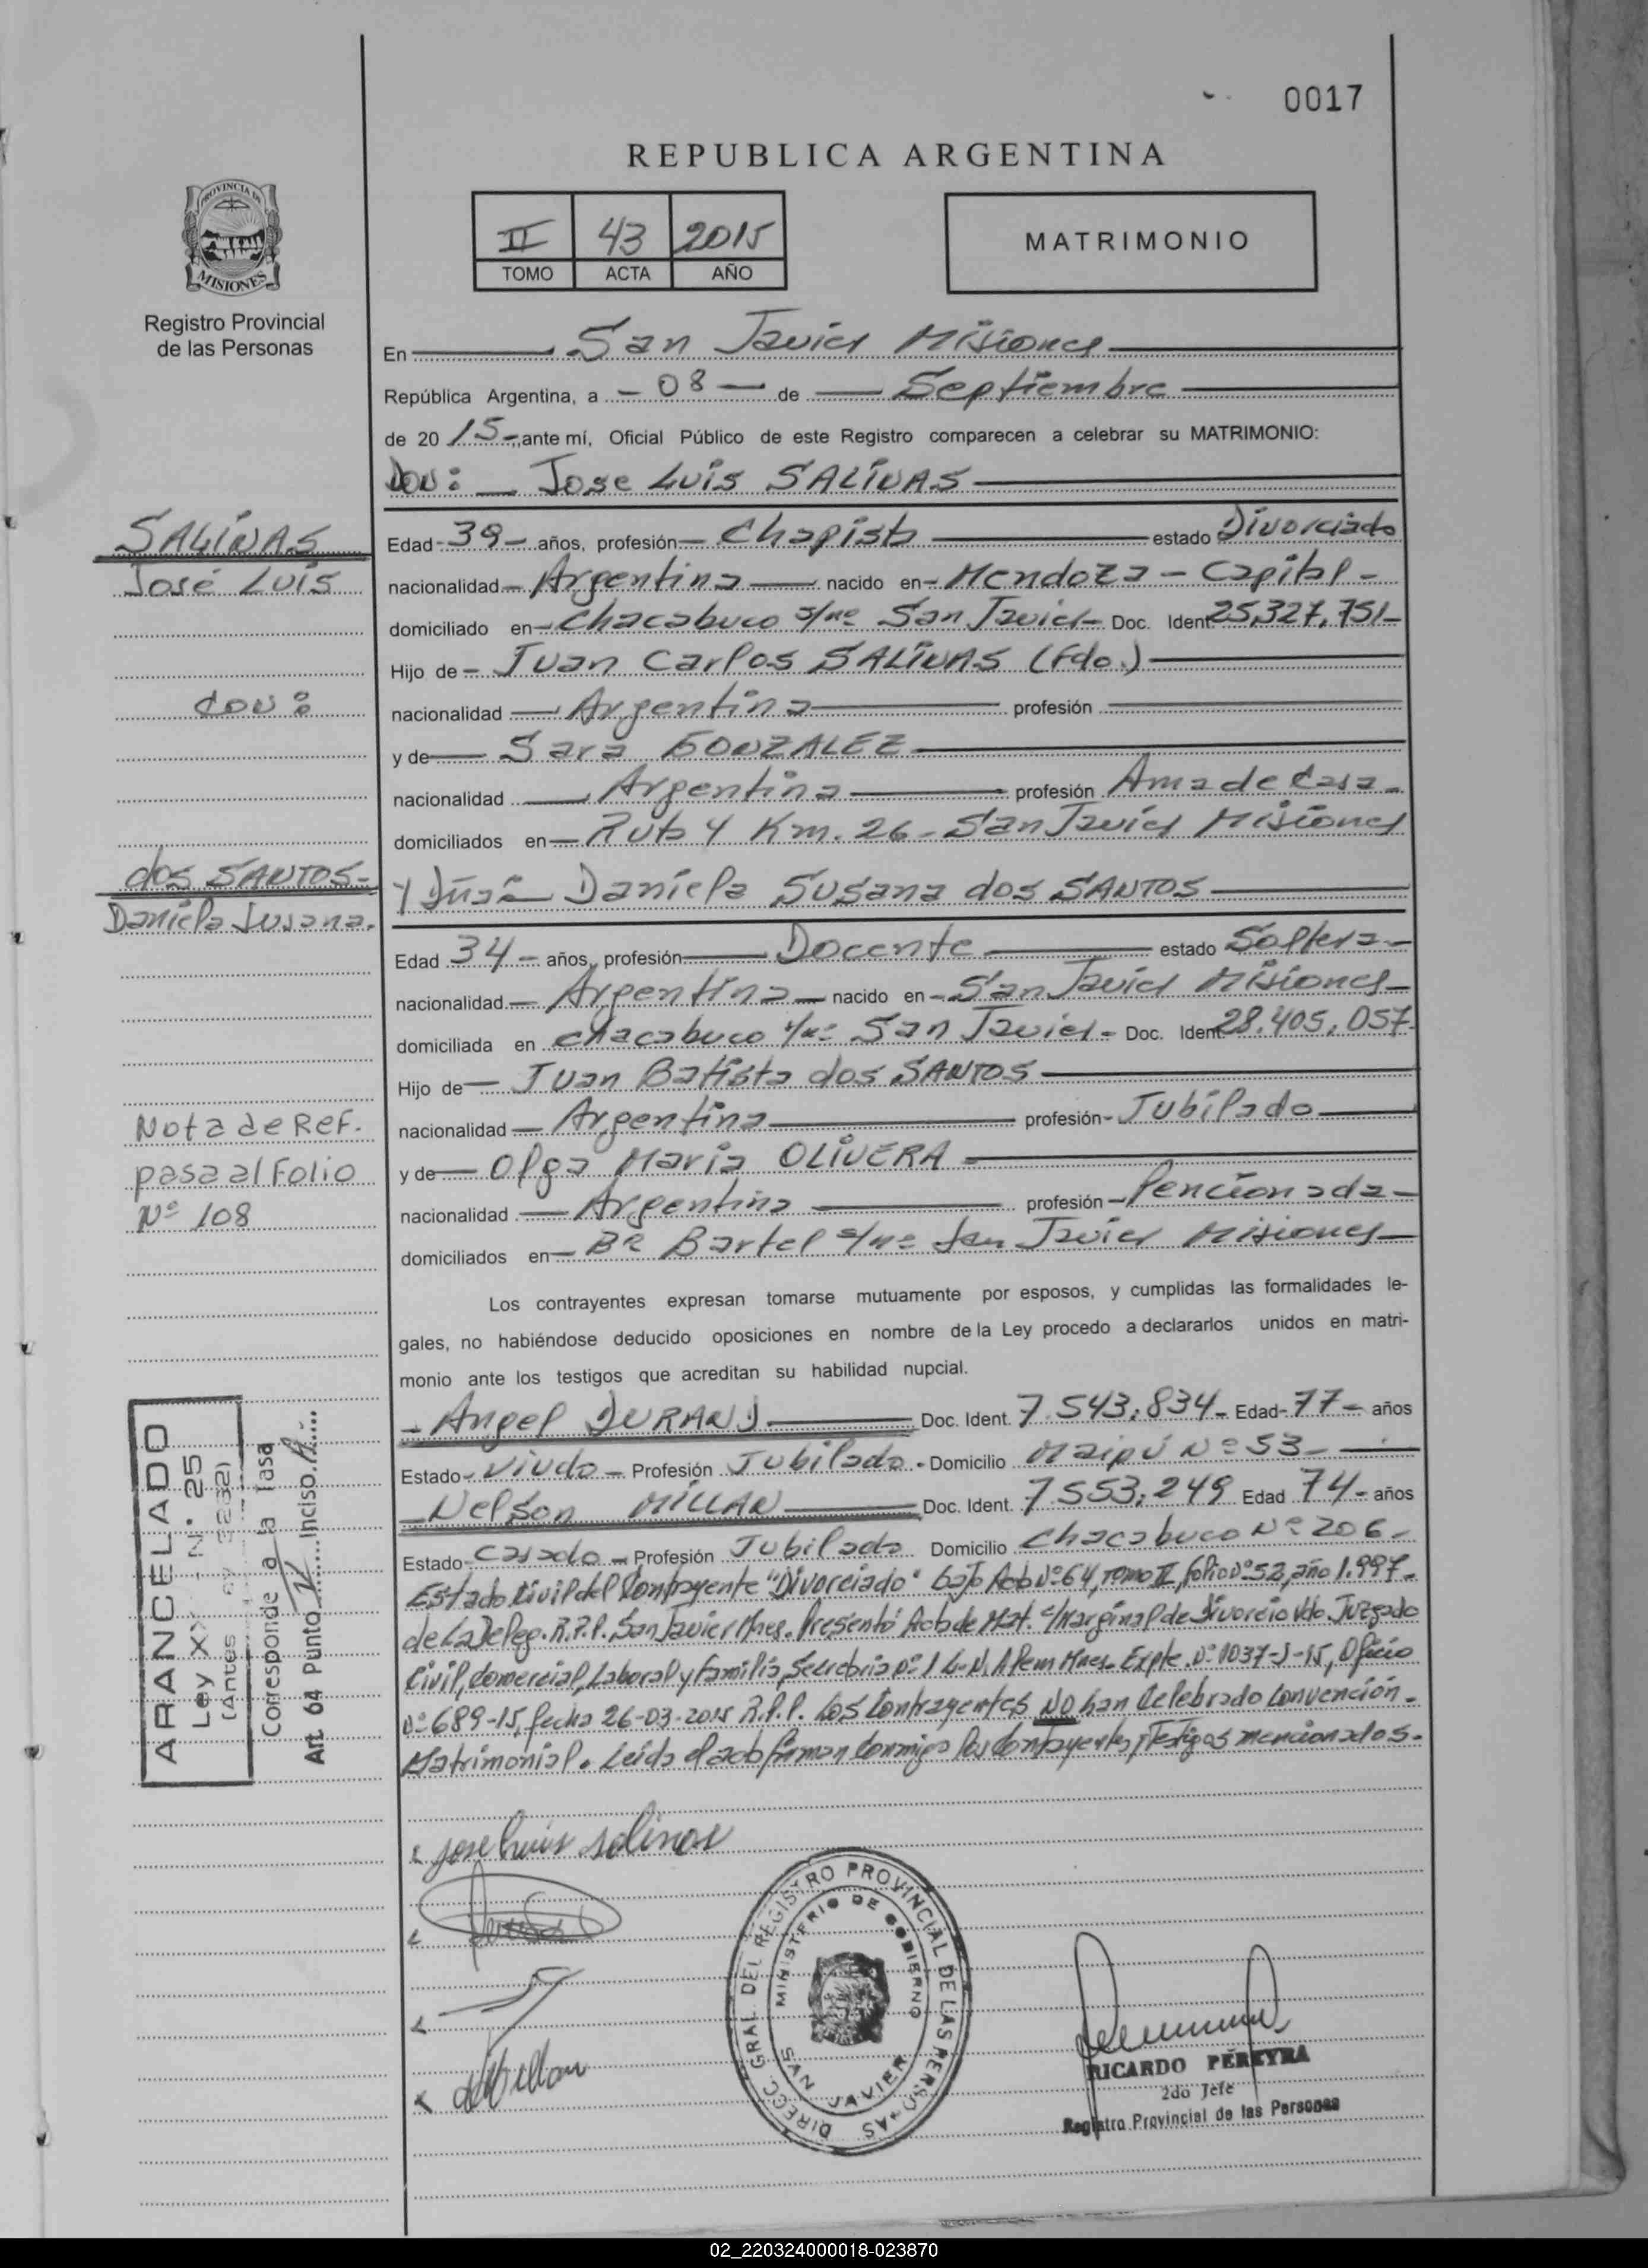 0017
REPUBLICA ARGENTINA
II 43 2015
TOMO ACTA AÑO
MATRIMONIO
PROVINCIA DE
MISIONES
Registro Provincial
de las Personas
En San Javier Misiones
República Argentina, a - 08 - de Septiembre
de 20 15-, ante mí, Oficial Público de este Registro comparecen a celebrar su MATRIMONIO:
Don: Jose Luis SALINAS
SALINAS
José Luis
con:
dos SANTOS-
Daniela Susana.
Nota de Ref.
pasa al Folio
Nº 108
Edad 39- años, profesión Chapista estado Divorciado
nacionalidad Argentina nacido en Mendoza - Capital -
domiciliado en Chacabuco s/nº San Javier- Doc. Ident 25,327,751-
Hijo de Juan Carlos SALINAS (Fdo.)
nacionalidad Argentina profesión
y de Sara GONZALEZ
nacionalidad Argentina profesión Ama de Casa-
domiciliados en Ruta 4 Km. 26- San Javier Misiones
Y Dña Daniela Susana dos SANTOS
Edad 34- años, profesión Docente estado Soltera-
nacionalidad Argentina nacido en San Javier Misiones-
domiciliada en Chacabuco s/nº San Javier- Doc. Ident 28.405.057-
Hijo de Juan Batista dos SANTOS
nacionalidad Argentina profesión Jubilado
y de Olga Maria OLIVERA
nacionalidad Argentina profesión Pencionada-
domiciliados en Bº Bartel s/nº San Javier Misiones
Los contrayentes expresan tomarse mutuamente por esposos, y cumplidas las formalidades le-
gales, no habiéndose deducido oposiciones en nombre de la Ley procedo a declararlos unidos en matri-
monio ante los testigos que acreditan su habilidad nupcial.
- Angel DURAN Doc. Ident. 7.543.834- Edad 77- años
Estado Viudo- Profesión Jubilado- Domicilio Maipú Nº 53-
Nelson MILLAN Doc. Ident. 7.553.249 Edad 74- años
Estado Casado- Profesión Jubilado Domicilio Chacabuco Nº 206-
Estado Civil del Contrayente "Divorciado" bajo Acta Nº 64, Tomo II, folio Nº 52, año 1.997-
de La Deleg. R.P.P. San Javier Mnes. Presentó Acta de Mat. c/Marginal de Divorcio Vdo. Juzgado
Civil, Comercial, Laboral y familia, Secretaria Nº 1 L.N. Alem Mnes- Expte. Nº 1037-J-15, Oficio
Nº 689-15, fecha 26-03-2015 R.P.P. Los Contrayentes NO han Celebrado Convención-
Matrimonial. Leída el acta firman Conmigo los Contrayentes y Testigos mencionados.
ARANCELADO
Ley XX - N° 25
(Antes Ley 3232)
Corresponde a la Tasa
Art. 64 Punto IV Inciso A
Jose Luis Salinas
DIRECC. GRAL. DEL REGISTRO PROVINCIAL DE LAS PERSONAS
MINISTERIO DE GOBIERNO
SAN JAVIER
RICARDO PEREYRA
2do Jefe
Registro Provincial de las Personas
02_220324000018-023870